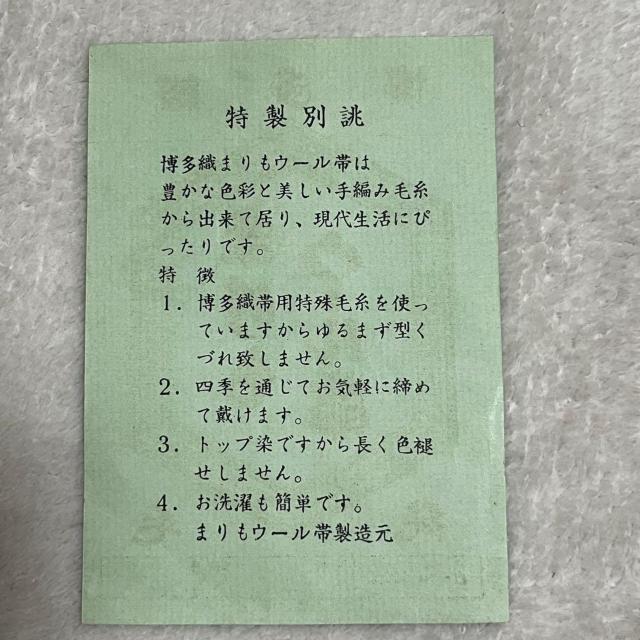 特製別誂
博多織まりもウール帯は
豊かな色彩と美しい手編み毛糸
から出来て居り、現代生活にぴ
ったりです。
特　徴
1．博多織帯用特殊毛糸を使っ
ていますからゆるまず型く
づれ致しません。
2．四季を通じてお気軽に締め
て戴けます。
3．トップ染ですから長く色褪
せしません。
4．お洗濯も簡単です。
まりもウール帯製造元